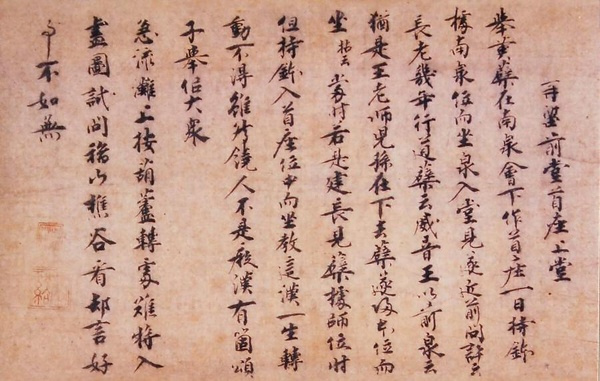 前堂首座上堂
舉黃蘗在南泉會下作首座一日持鉢
據南泉位而坐泉入堂見遂近前問訊云
長老幾年行道蘗云威音王以前泉云
猶是王老師兒孫在下去蘗遂歸本位而
坐拈云當時若是建長見蘗據師位時
但持鉢入首座位中而坐教這漢一生轉
動不得雖然饒人不是癡漢有箇頌
子舉似大衆
急流灘上按葫蘆轉處難將入
畫圖試問稽山樵谷看却言好
事不如無